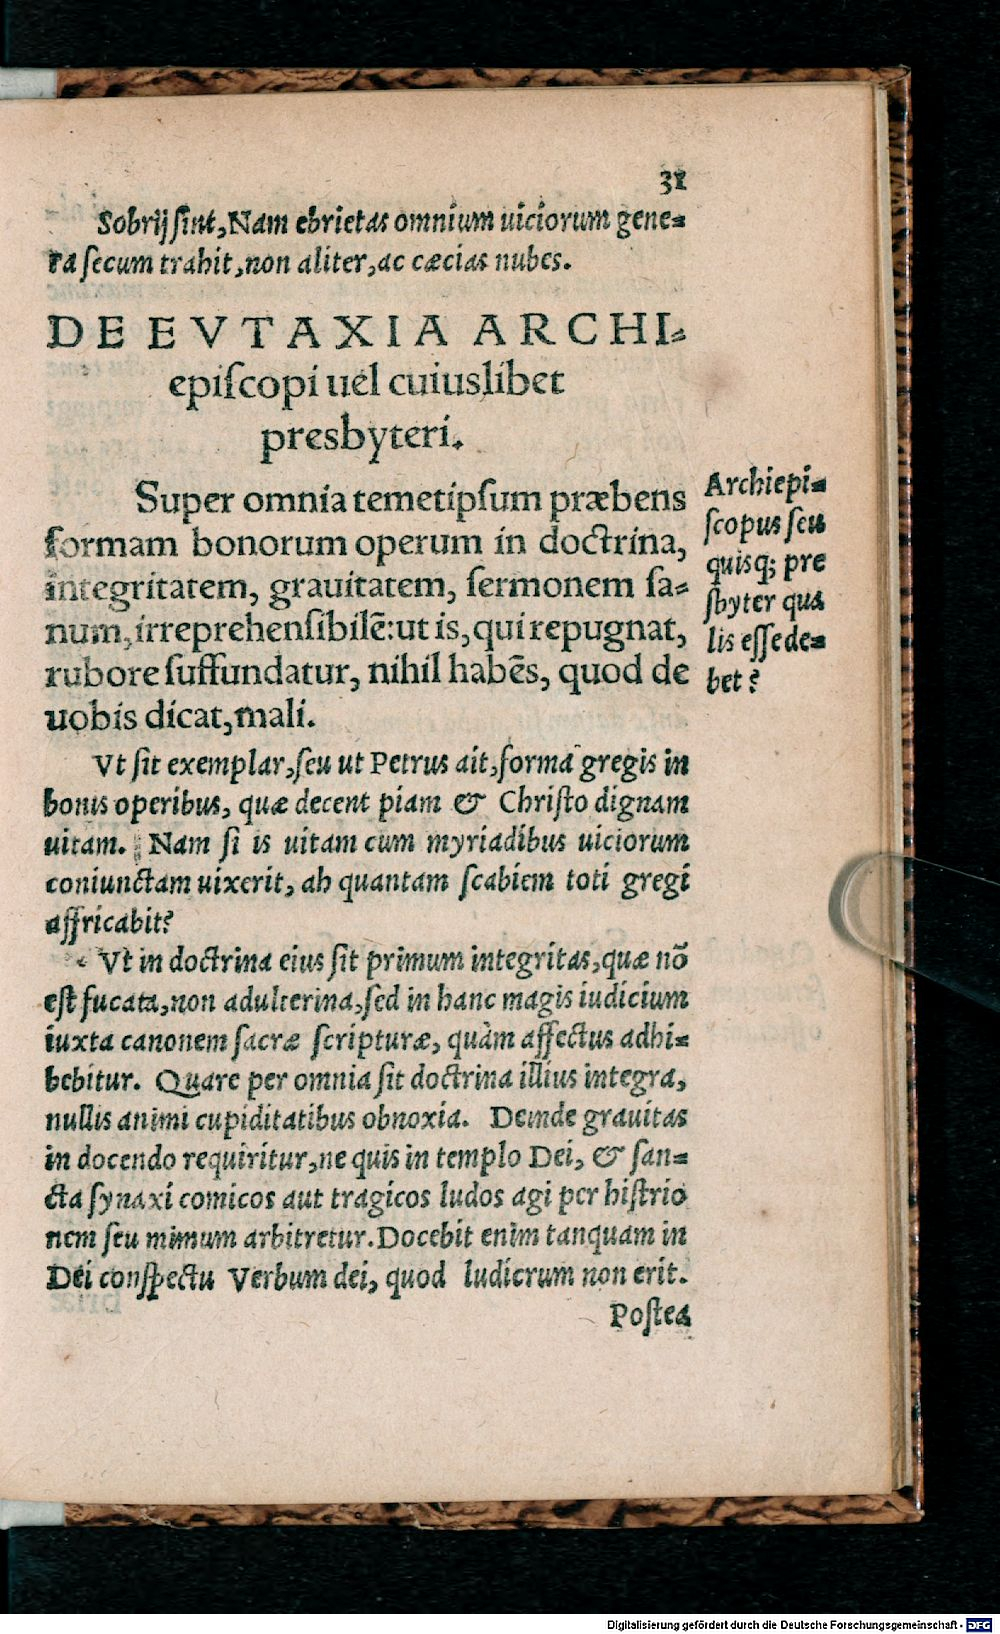 31
Sobrij ſint, Nam ebrietas omnium uiciorum gene⸗
ra ſecum trahit, non aliter, ac cæcias nubes.
DE EVTAXIA ARCHI⸗
epiſcopi uel cuiuslibet
presbyteri.
Super omnia temetipſum præbens
formam bonorum operum in doctrina,
integritatem, grauitatem, ſermonem ſa⸗
num, irreprehenſibilē: ut is, qui repugnat,
rubore ſuffundatur, nihil habēs, quod de
uobis dicat, mali.
Archiepi⸗
ſcopus ſeu
quisq; pre
ſbyter qua
lis eſſe de⸗
bet?
Vt ſit exemplar, ſeu ut Petrus ait, forma gregis in
bonis operibus, quæ decent piam & Chriſto dignam
uitam. Nam ſi is uitam cum myriadibus uiciorum
coniunctam uixerit, ah quantam ſcabiem toti gregi
affricabit?
Vt in doctrina eius ſit primum integritas, quæ nō
eſt fucata, non adulterina, ſed in hanc magis iudicium
iuxta canonem ſacræ ſcripturæ, quàm affectus adhi⸗
bebitur. Quare per omnia ſit doctrina illius integra,
nullis animi cupiditatibus obnoxia. Deinde grauitas
in docendo requiritur, ne quis in templo Dei, & ſan⸗
cta ſynaxi comicos aut tragicos ludos agi per hiſtrio
nem ſeu mimum arbitretur. Docebit enim tanquam in
Dei conſpectu Verbum dei, quod ludicrum non erit.
Poſtea
Digitalisierung gefördert durch die Deutsche Forschungsgemeinschaft - DFG